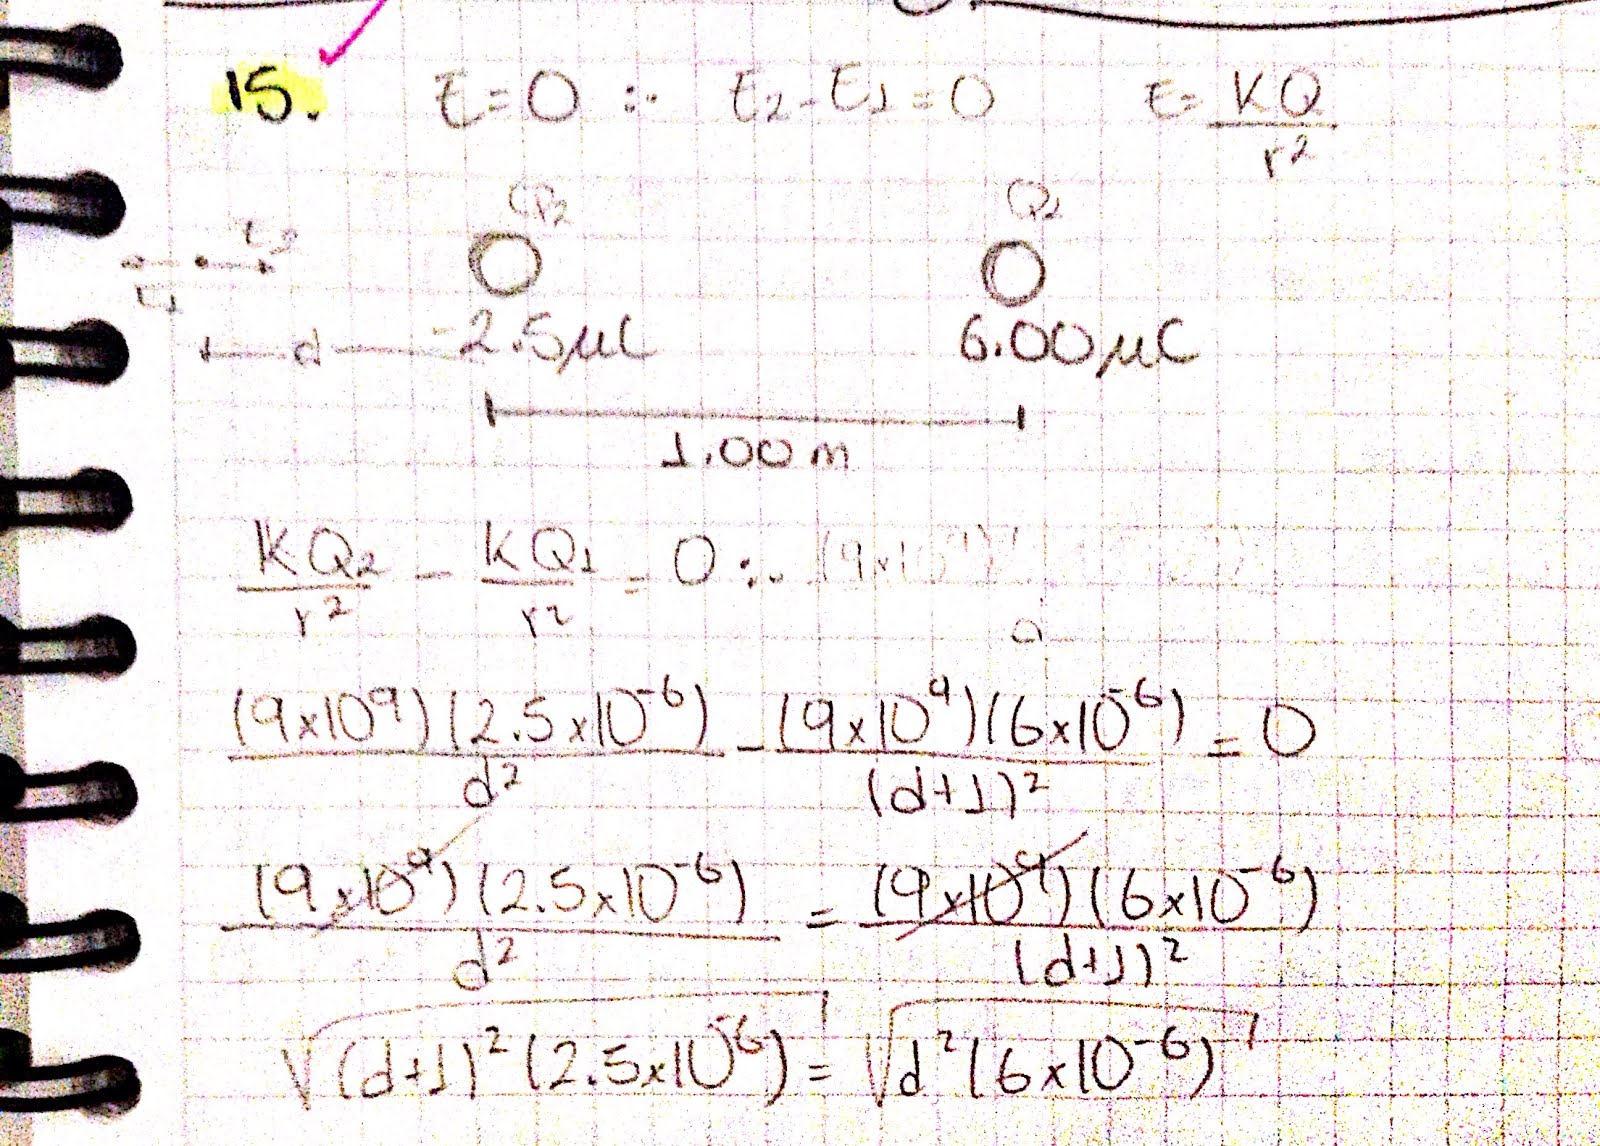 15. E=0 ∴ E2-E1=0 E=KQ/r²
Q2 Q1
E2
E1
d -2.5μC 6.00μC
1.00m
KQ2/r² - KQ1/r² = 0 ∴ (9x10⁹)
(9x10⁹)(2.5x10⁻⁶)/d² - (9x10⁹)(6x10⁻⁶)/(d+1)² = 0
(9x10⁹)(2.5x10⁻⁶)/d² = (9x10⁹)(6x10⁻⁶)/(d+1)²
√(d+1)²(2.5x10⁻⁶) = √d²(6x10⁻⁶)